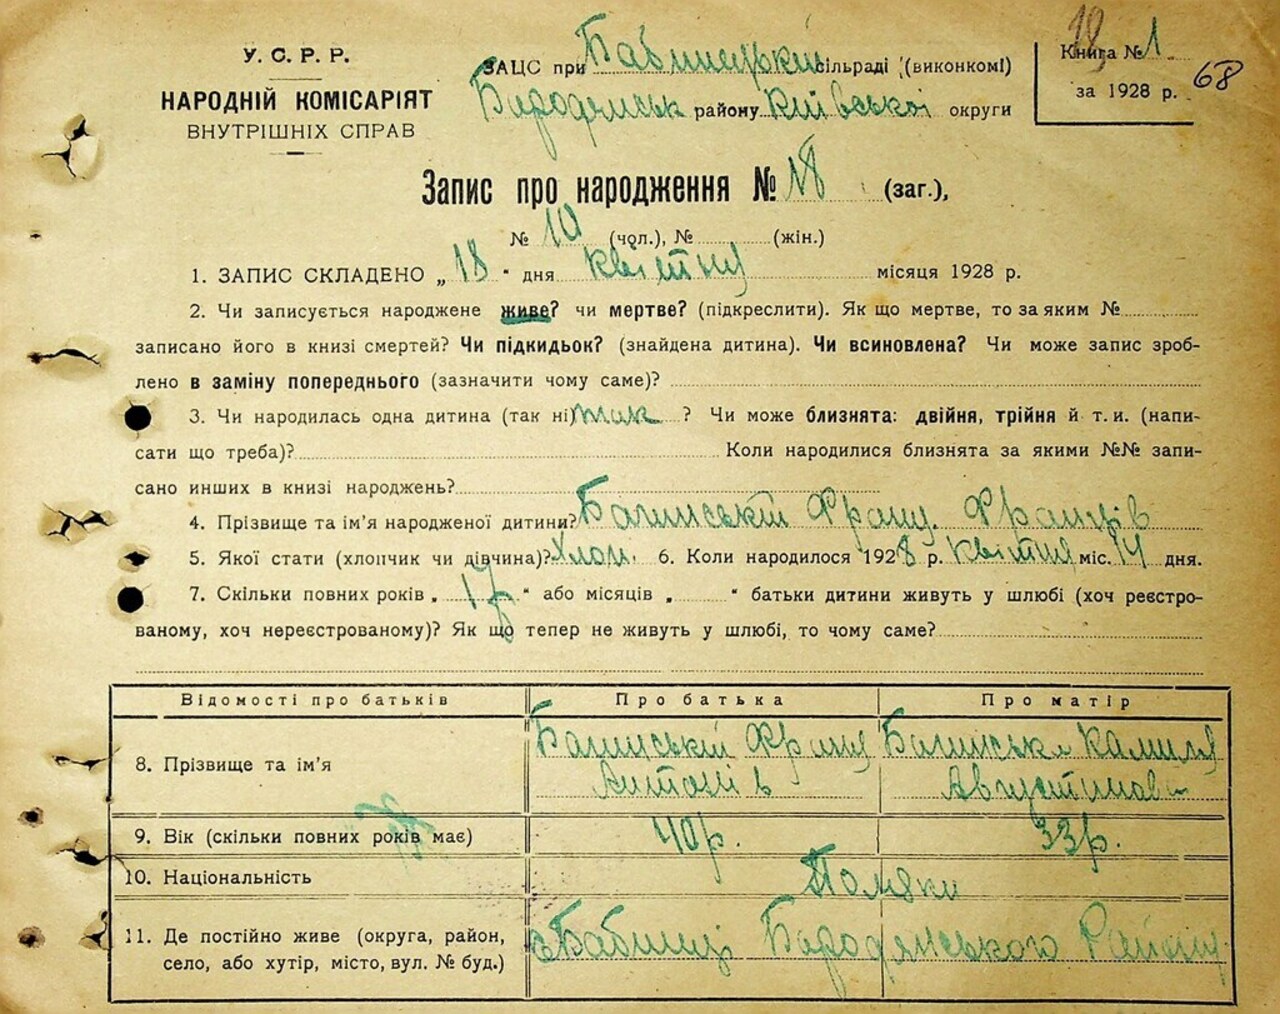 У. С. Р. Р.
НАРОДНІЙ КОМІСАРІЯТ
ВНУТРІШНІХ СПРАВ
ЗАЦС при Бабинецькій сільраді (виконкомі)
району Київської округи
Книга № 1
за 1928 р.
68
Запис про народження № 18 (заг.),
№ 10 (чол.), № (жін.)
1. ЗАПИС СКЛАДЕНО „ 18 " дня квітня місяця 1928 р.
2. Чи записується народжене живе? чи мертве? (підкреслити). Як що мертве, то за яким №
записано його в книзі смертей? Чи підкидьок? (знайдена дитина). Чи всиновлена? Чи може запис зроб-
лено в заміну попереднього (зазначити чому саме)?
3. Чи народилась одна дитина (так ні) так ? Чи може близнята: двійня, трійня й т. и. (напи-
сати що треба)? Коли народилися близнята за якими №№ запи-
сано инших в книзі народжень?
4. Прізвище та ім'я народженої дитини? Багинській Франц. Франців
5. Якої стати (хлопчик чи дівчина)? Хлоп. 6. Коли народилося 1928 р. квітня міс. 14 дня.
7. Скільки повних років „ 17 " або місяців „ " батьки дитини живуть у шлюбі (хоч реєстро-
ваному, хоч нереєстрованому)? Як що тепер не живуть у шлюбі, то чому саме?
Відомості про батьків Про батька Про матір
8. Прізвище та ім'я Багинській Франц Антонів Багинська Камиля Августинов
9. Вік (скільки повних років має) 40 р. 33 р.
10. Національність Поляки
11. Де постійно живе (округа, район,
село, або хутір, місто, вул. № буд.) с Бабинці Бородянського Району